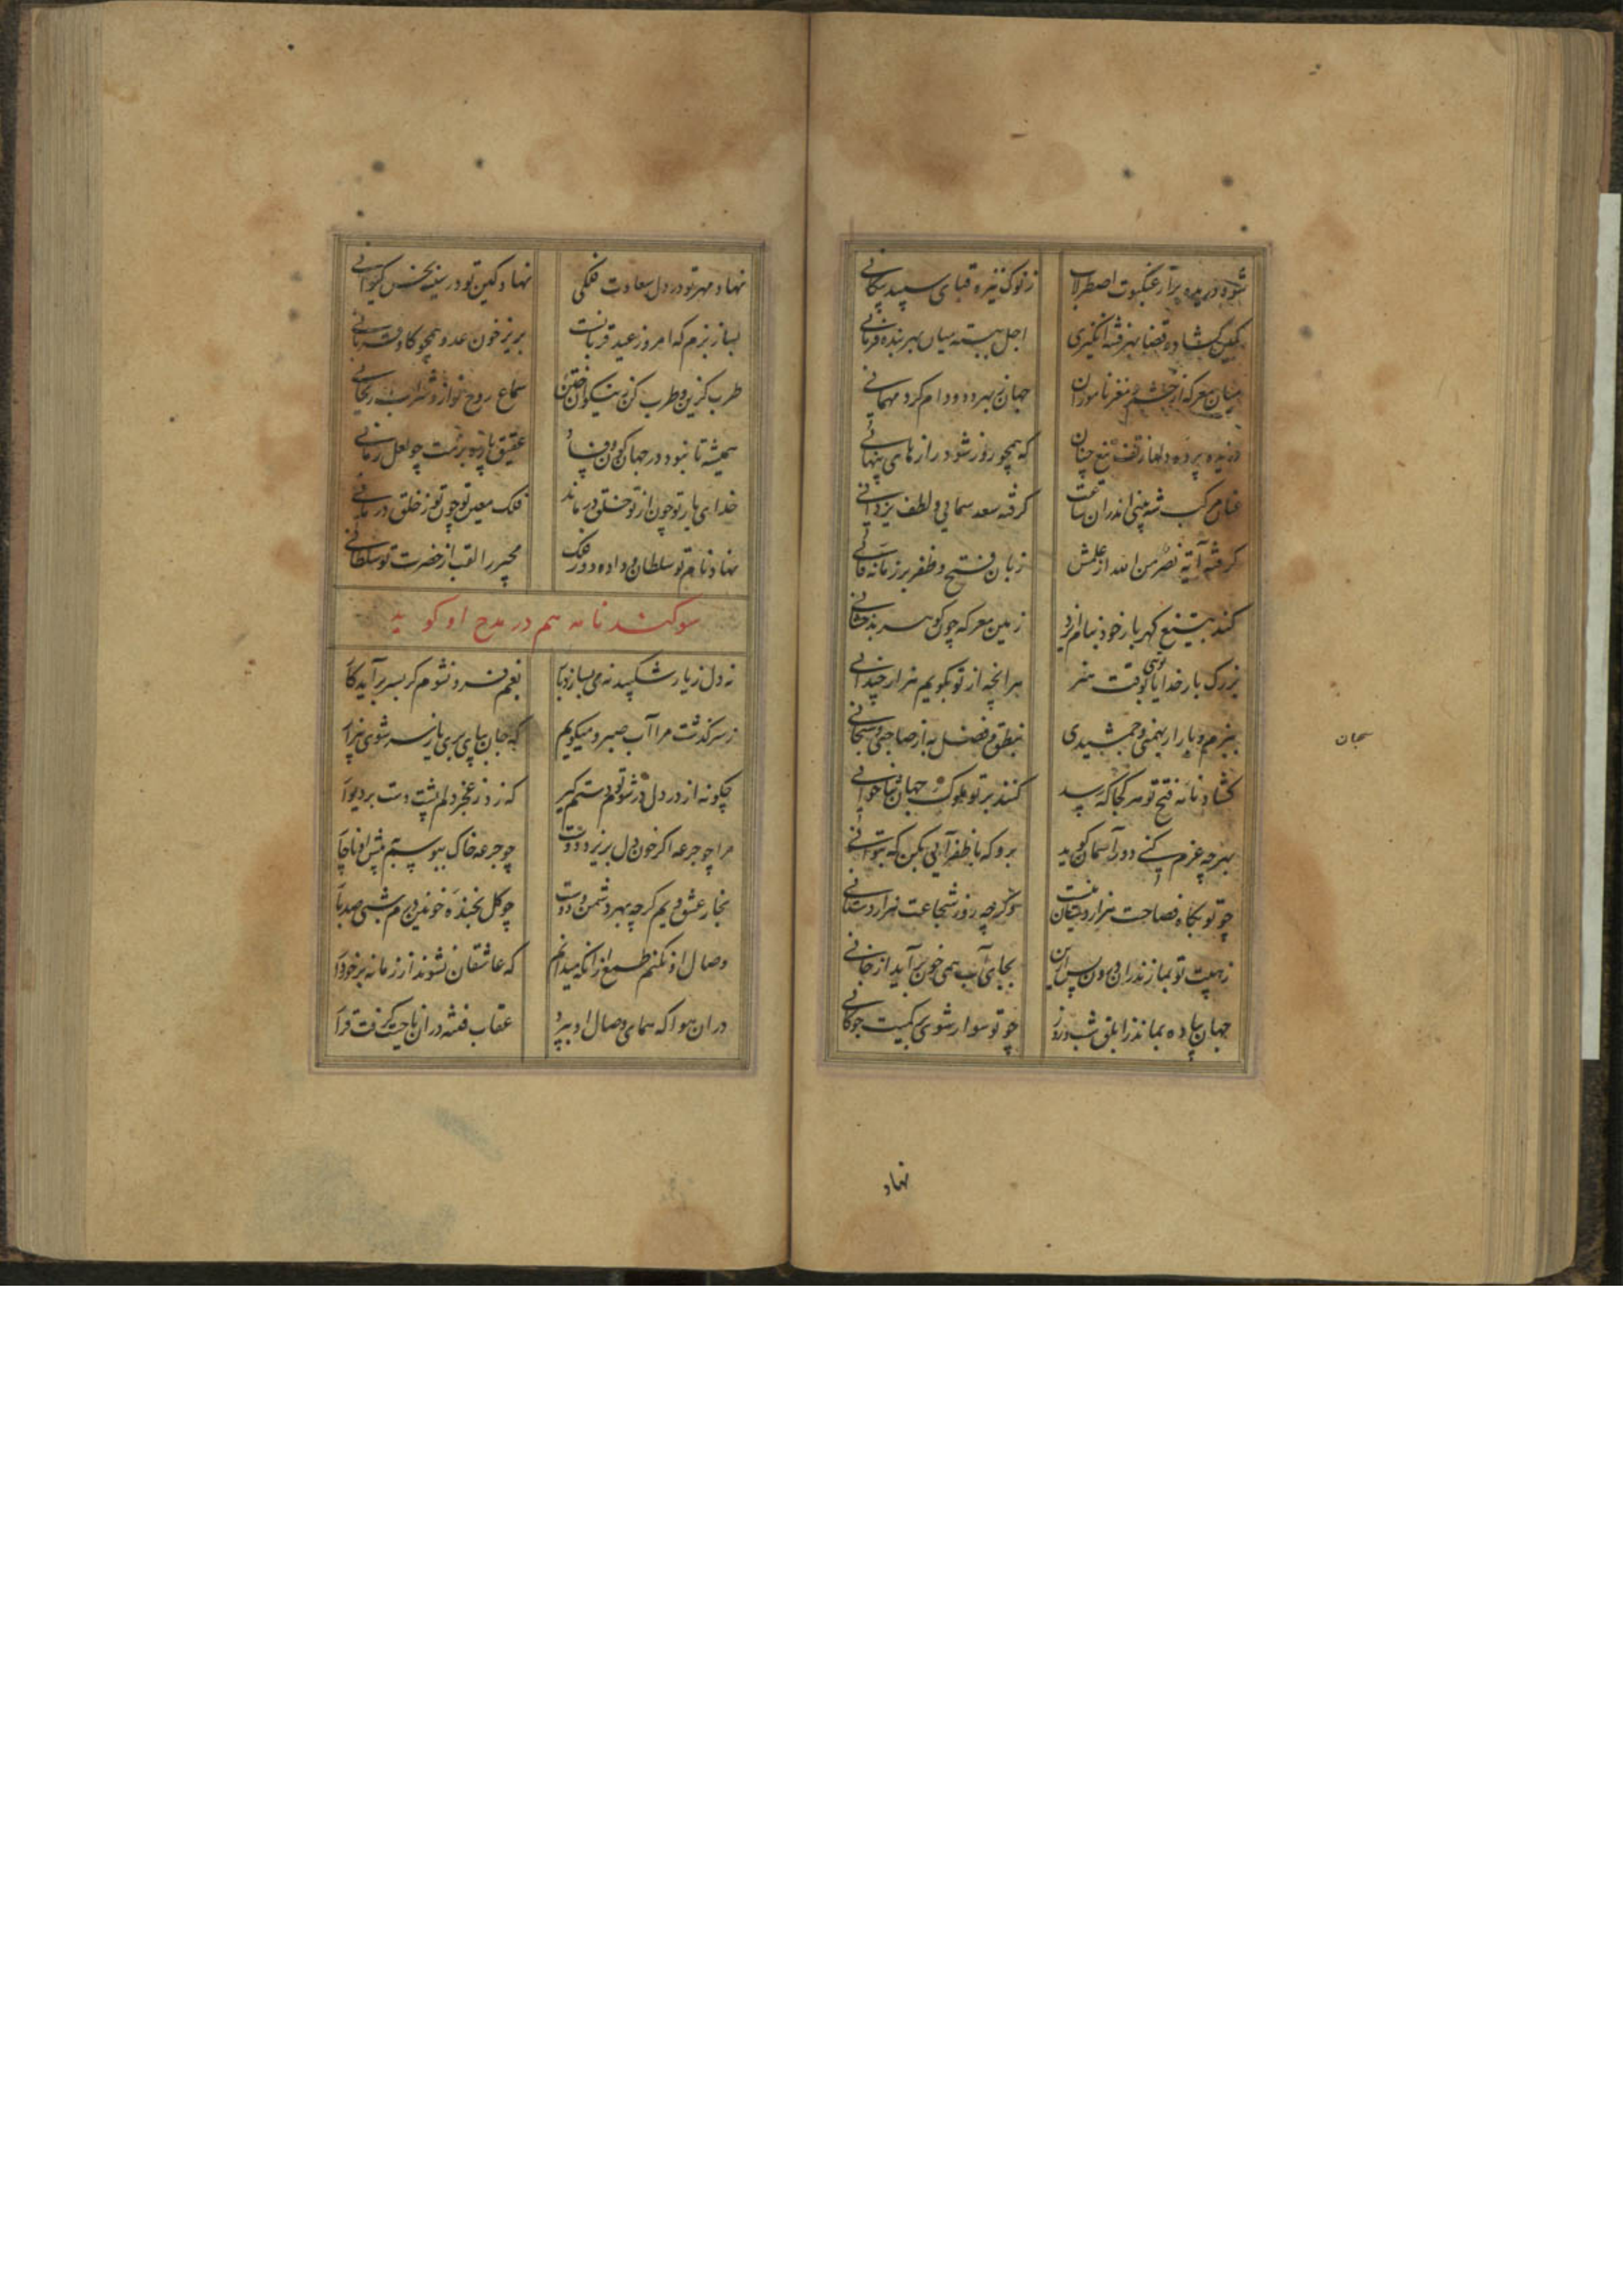 شود دریده پر از عنکبوت اصطرلاب
ز نوک نیزه قبای سپید پیکانی
کمین گشاده قضا بهر فتنه انگیزی
اجل ببسته میان بهر بنده فرمانی
میان معرکه از چشم و مغز ناموران
جهان بهر دد و دام کرد مهمانی
پرده دلها ز تف تیغ چنان
که همچو روز شود رازهای پنهانی
عنان مرکب شه بینی اندران ساعت
گرفته سعد سمایی و لطف یزدانی
گرفته آیه نصر من الله از علمش
زبان فتح و ظفر بر زمانه
کند بتیغ گهربار خود نیام ایزد
زمین معرکه چون گوهر بدخشانی
بزرگ بار خدایا توی بوقت هنر
هرانچه از تو بگویم هزار چندانی
ببزم و بار ار بهمنی و جمشیدی
بنطق و فضل به از صاحبی و سحبانی
گشاد نامه فتح تو هر کجا که رسد
کنند بر تو ملوک جهان ثناخوانی
بهرچه عزم کنی دور آسمان گوید
برو که با ظفر آیی بکن که بتوانی
چو تو بگاه فصاحت هزار دستان نیست
وگرچه روز شجاعت هزار دستانی
ز هیبت تو بمازندران درون پس ازین
بجای آب همی خون برآید از خانی
جهان پیاده بماند ز ابلق شب و روز
چو تو سوار شوی بر کمیت جوگانی
سحبان
نهاد
نهاد مهر تو در دل سعادت فلکی
نهاد کین تو در سینه نحس کیوانی
بساز بزم که امروز عید قربانست
بریز خون عدو همچو گاو قربانی
طرب گزین و طرب کن ز نیکوان ختن
سماع روح نواز و شراب ریحانی
همیشه تا نبود در جهان کون و فساد
عقیق پاره بر نیست چو لعل رمانی
خدای یار تو چون از تو خلق درماند
فلک معین تو چون تو ز خلق درمانی
نهاد نام تو سلطان و داده دور فلک
مجیر را لقب از حضرت تو سلطانی
سوگند نامه هم در مدح او گوید
نه دل ز یار شکیبد نه می بسازد یار
بغم فرو نشوم گر بسر برآید کار
ز سر گذشت مرا آب صبر و میگویم
که جان بپای بری یا ز سر شوی بیزار
چگونه از در دل در شوم تو دستم گیر
که زد ز عجز دلم پشت دست بر دیوار
مرا چو جرعه اگر خون دل بریزد دوست
چو جرعه خاک ببوسیم پیش او ناچار
بخار عشق ویم گرچه بهر دشمن و دوست
چو گل بخنده خونین درم شبی صد بار
وصال او نکنم طمع ازانکه میدانم
که عاشقان نشوند از زمانه برخوردار
دران هوا که همای وصال او بپرد
عقاب فتنه دران ناحیت گرفت قرار